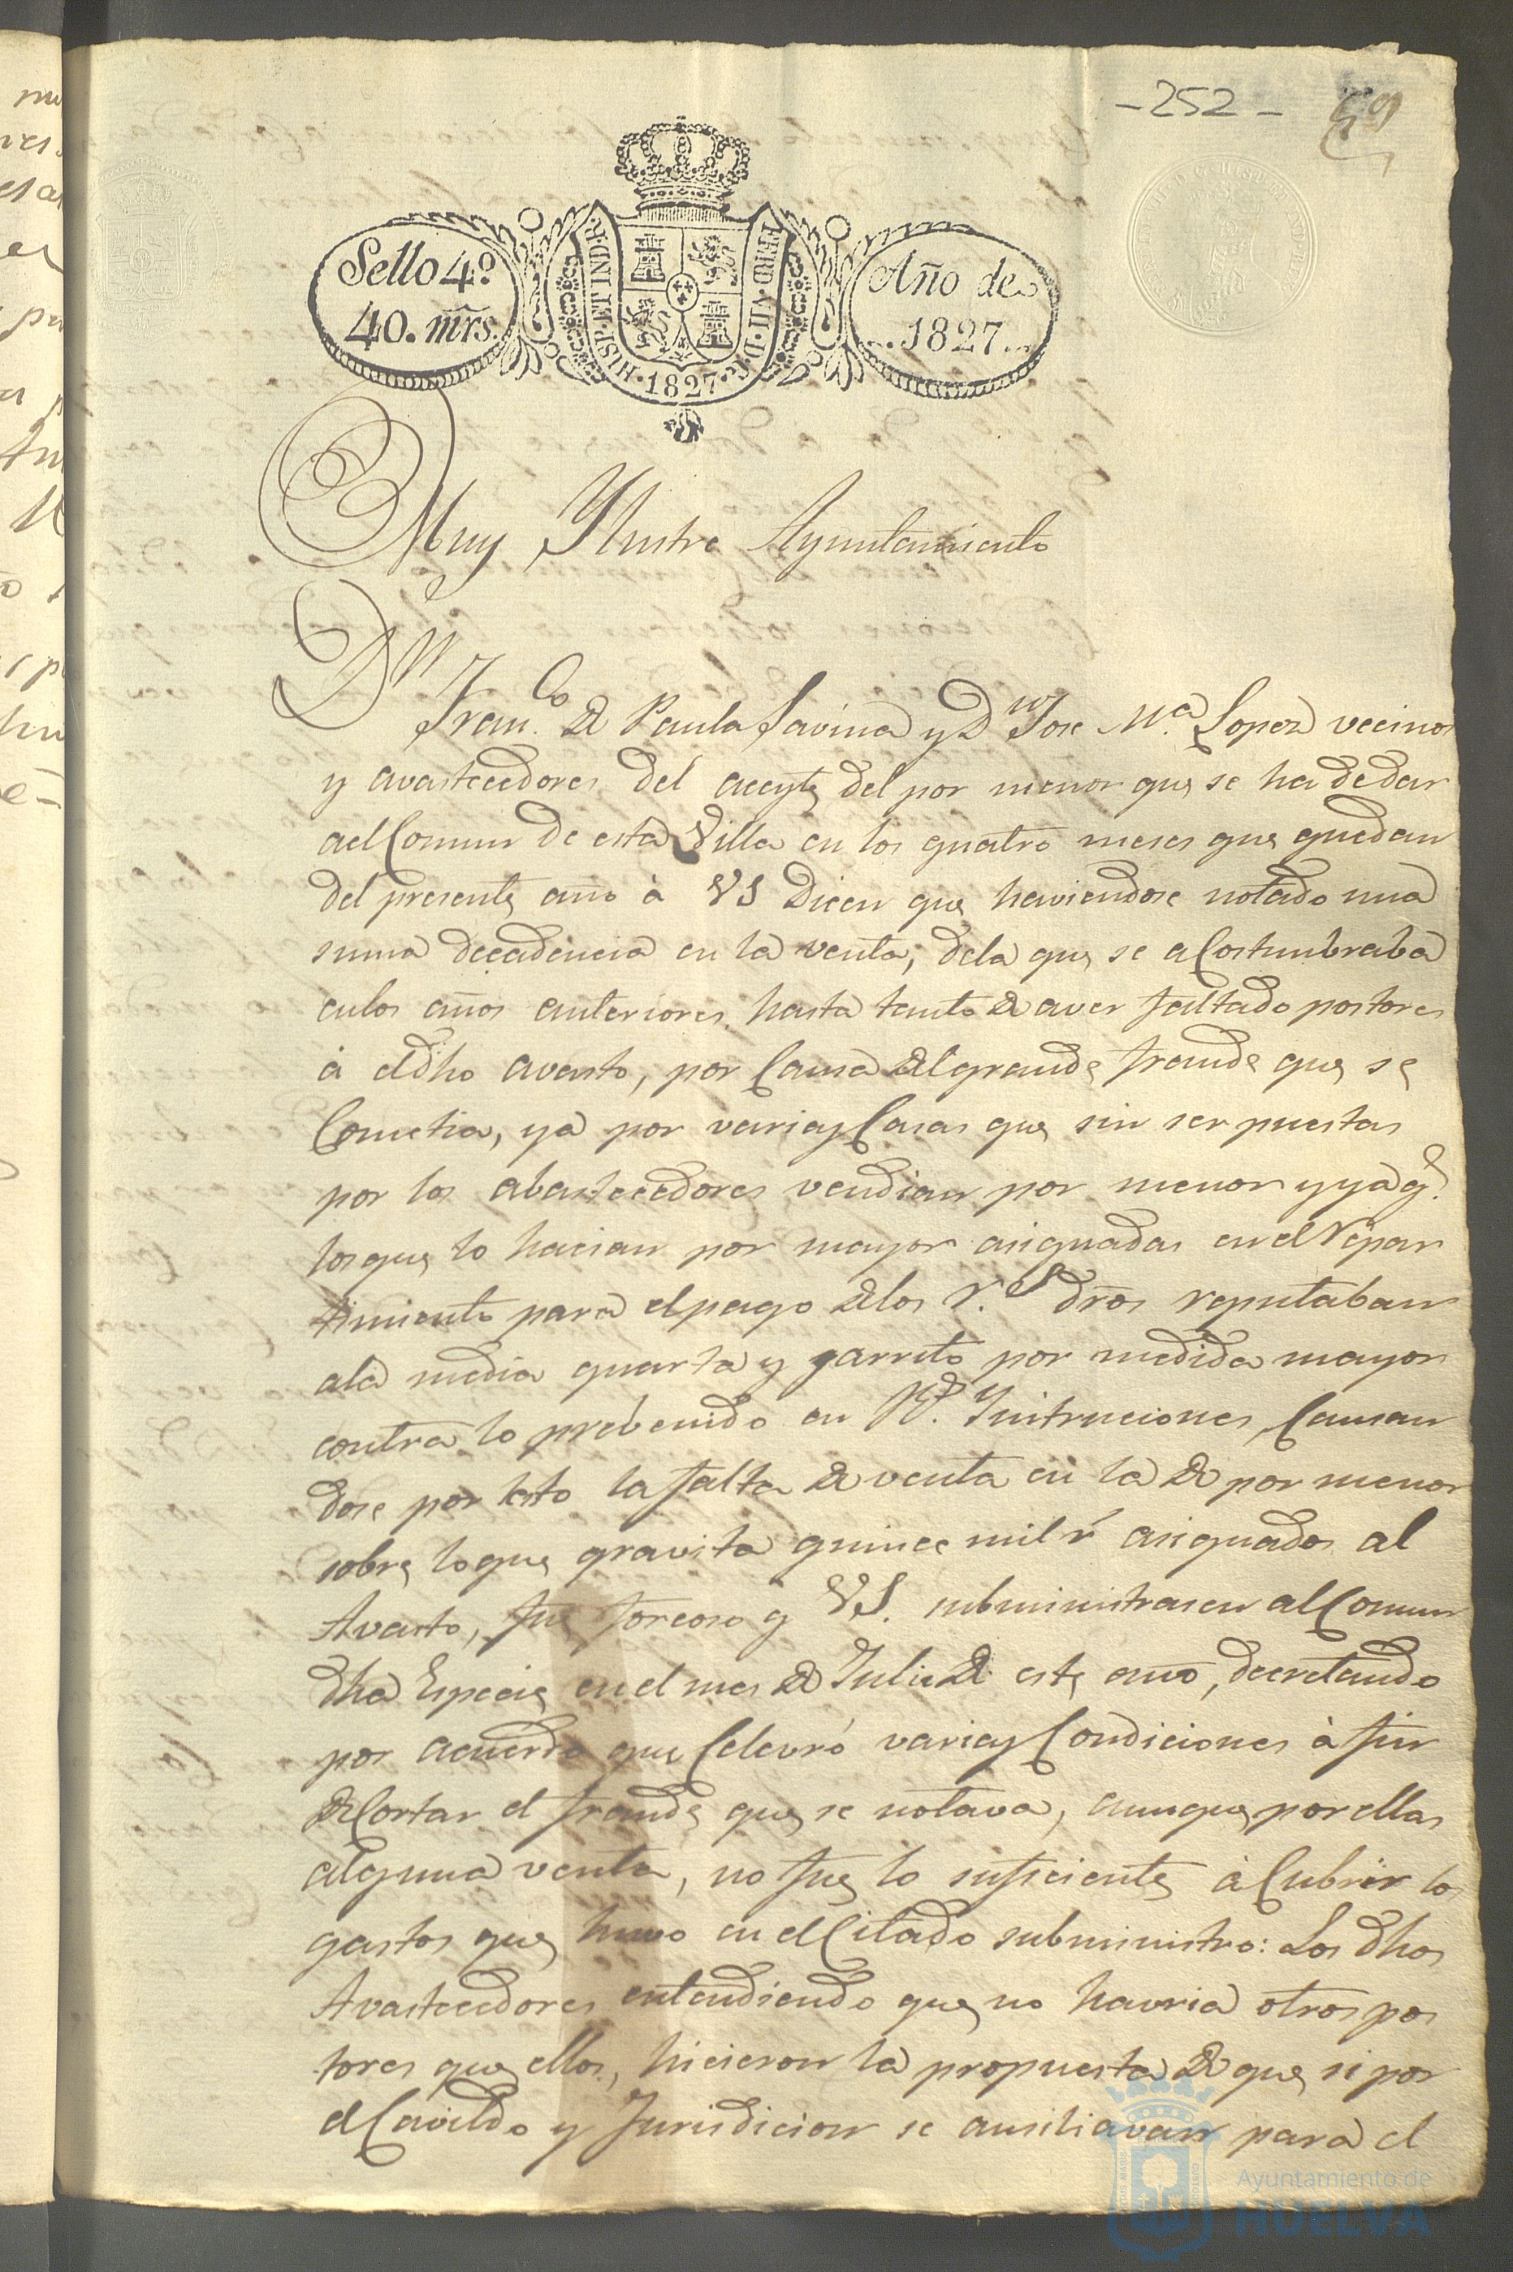 - 252 -
59
Sello 4º
40. mrs.
HISP. ET IND. R.
FERD. VII. D. G.
1827
Año de
1827.
Muy Ylustre Ayuntamiento
Dn
Franco. de Paula Savina y Dn Jose Ma. Lopez vecinos
y avastecedores del aceyte del por menor que se ha de dar
ael Comun de esta Villa en los quatro meses que quedan
del presente año à VS Dicen que haviendose notado una
suma decadencia en la venta, dela que se aCostumbraba
enlos años anteriores, hasta tanto de aver faltado postores
à eldho avasto, por Causa del grande fraude que se
Cometia, ya por varias Casas que sin ser puestas
por los abastecedores vendian por menor y ya q.e
los que lo hacian por mayor asignadas en el Repar
timiento para el pago delos r.s dros reputaban
ala media quarta y jarrito por medida mayor
contra lo prebenido en Rs. Instruciones, Causan
dose por esto la falta de venta en la de por menor
sobre loque gravita quince mil r.s asignados al
Avasto, fue forcoso q VS. subministrasen al Comun
dha Especie en el mes de Julio de este año, decretando
por acuerdo que Celevró varias Condiciones à fin
de Cortar el fraude que se notava, aunque por ellas
alguna venta, no fue lo suficiente à Cubrir los
gastos que huvo en el Citado subministro: Los dhos
Avastecedores entendiendo que no havria otros pos
tores que ellos, hicieron la propuesta de que si por
el Cavildo y Jurisdicion se ausiliavan para el
Ayuntamiento de
HUELVA